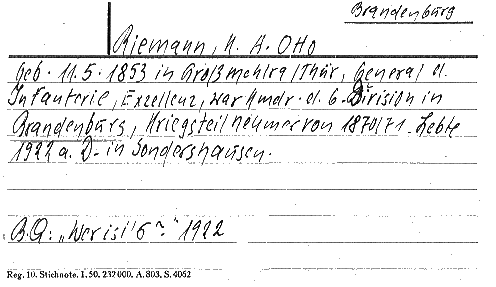 Brandenburg
Riemann, K. A. Otto
Geb. 11.5.1853 in Großmehlra/Thür, General d.
Infanterie, Exzellenz, war Kmdr. d. 6. Division in
Brandenburg, Kriegsteilnehmer von 1870/71. Lebte
1922 a. D. in Sondershausen.
B.Q: „Wer ist's?" 1922
Reg. 10. Stichnote. I. 50. 232000. A. 803. S. 4052